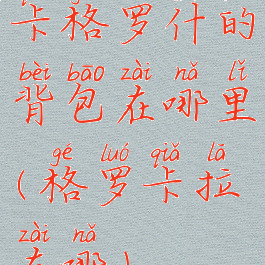 卡格罗什的
bèi bāo zài nǎ lǐ
背包在哪里
gé luó qiǎ lā
(格罗卡拉
zài nǎ
在哪)